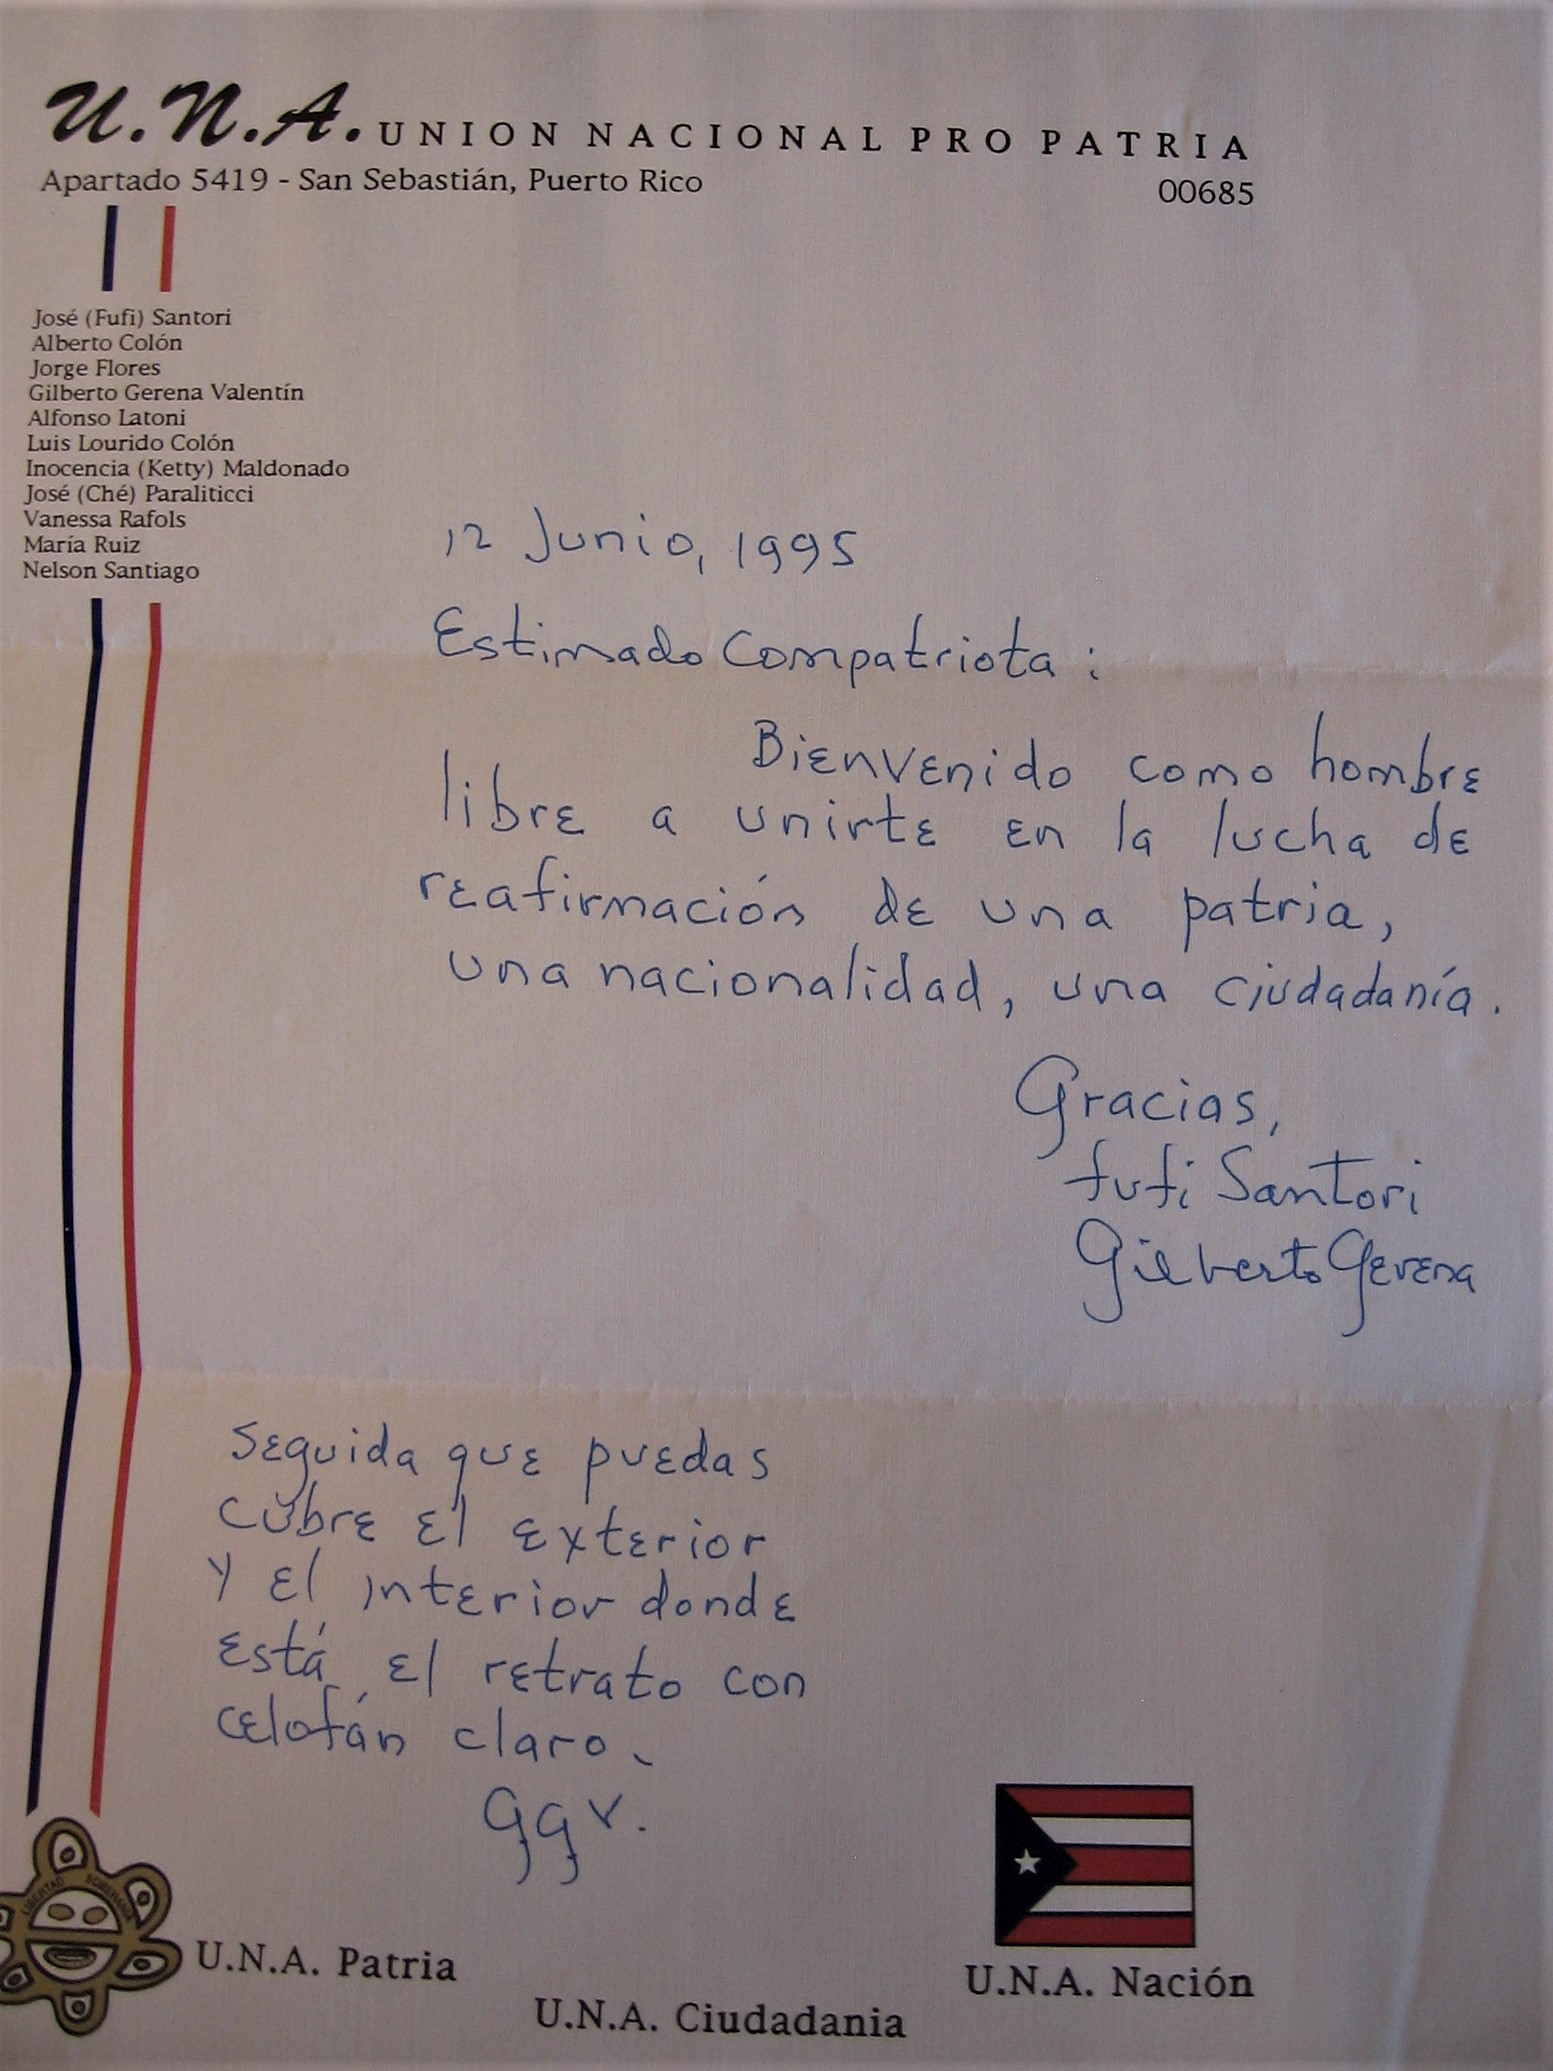 U.N.A. UNION NACIONAL PRO PATRIA
Apartado 5419 - San Sebastián, Puerto Rico 00685
José (Fufi) Santori
Alberto Colón
Jorge Flores
Gilberto Gerena Valentín
Alfonso Latoni
Luis Lourido Colón
Inocencia (Ketty) Maldonado
José (Ché) Paraliticci
Vanessa Rafols
María Ruiz
Nelson Santiago
12 Junio, 1995
Estimado Compatriota:
Bienvenido como hombre
libre a unirte en la lucha de
reafirmación de una patria,
una nacionalidad, una ciudadanía.
Gracias,
fufi Santori
Gilberto Gerena
Seguida que puedas
cubre el exterior
y el interior donde
está el retrato con
celofán claro.
GGV.
LIBERTAD SOBERANIA
U.N.A. Patria
U.N.A. Ciudadania
U.N.A. Nación